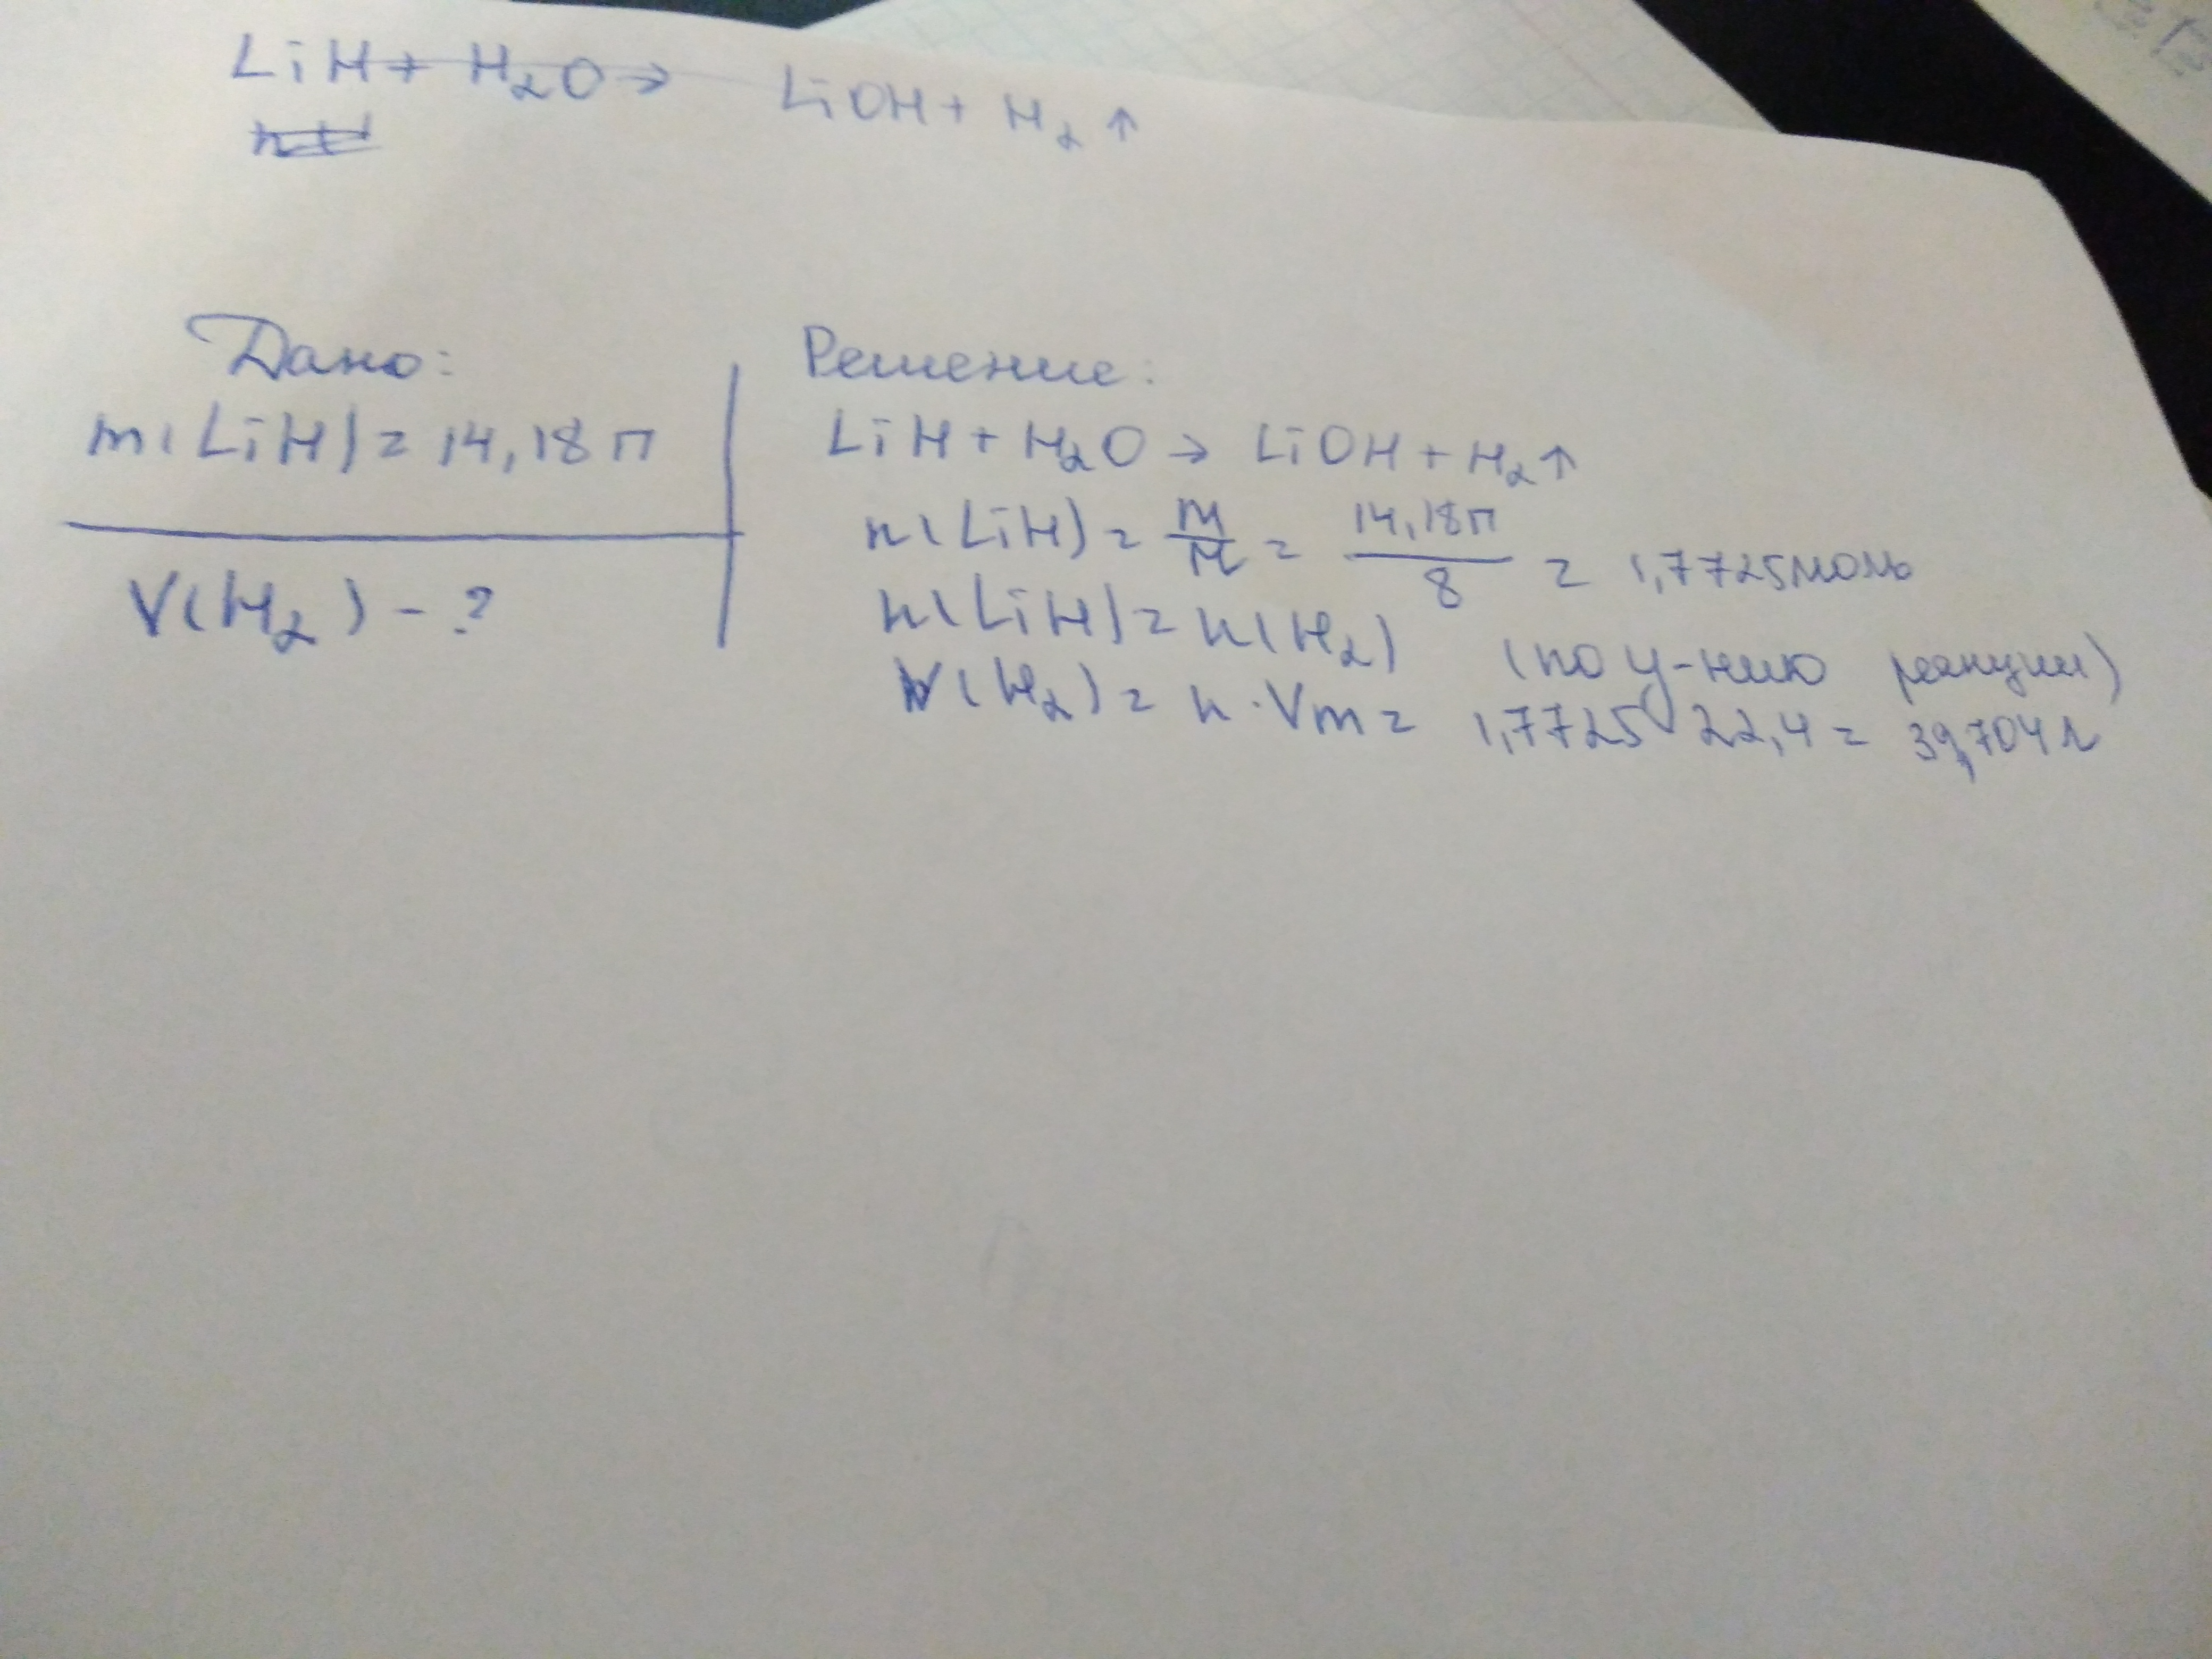 LiH + H₂O → LiOH + H₂ ↑
Дано:
m(LiH) = 14,18 г
V(H₂) - ?
Решение:
LiH + H₂O → LiOH + H₂ ↑
n(LiH) = m/M = 14,18г/8 = 1,7725 моль
n(LiH) = n(H₂) (по у-нию реакции)
V(H₂) = n · Vm = 1,7725 · 22,4 = 39,704 л